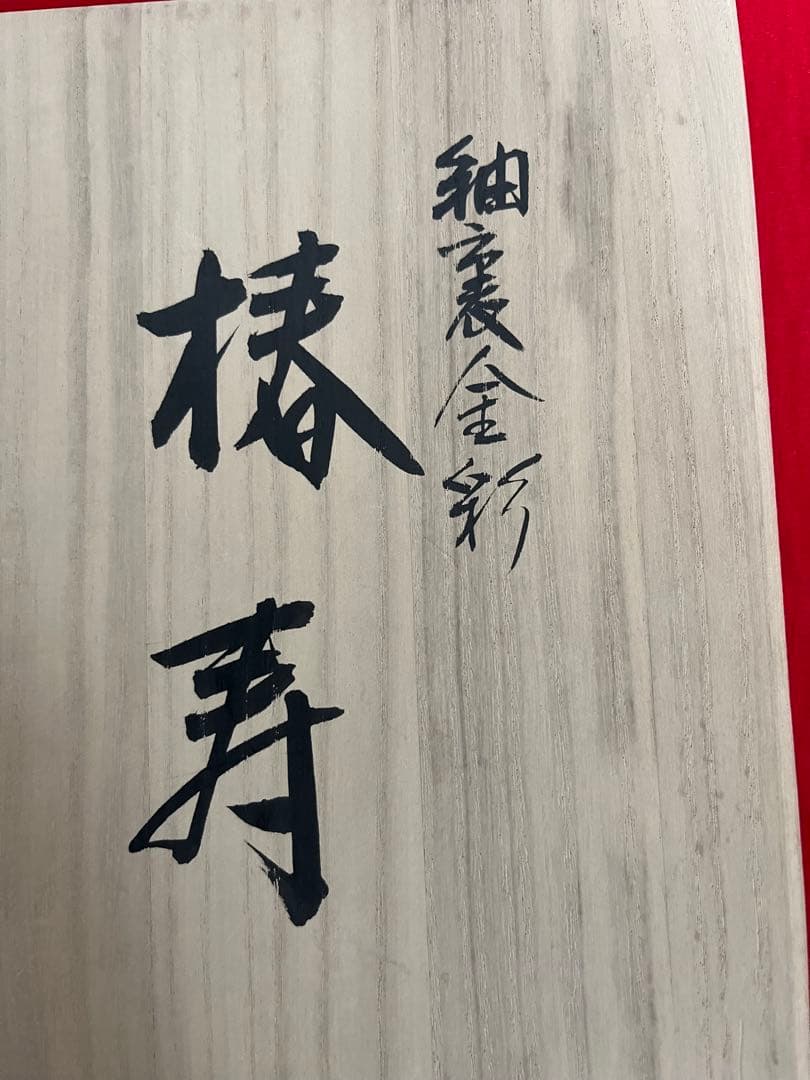 釉裏金彩
椿寿